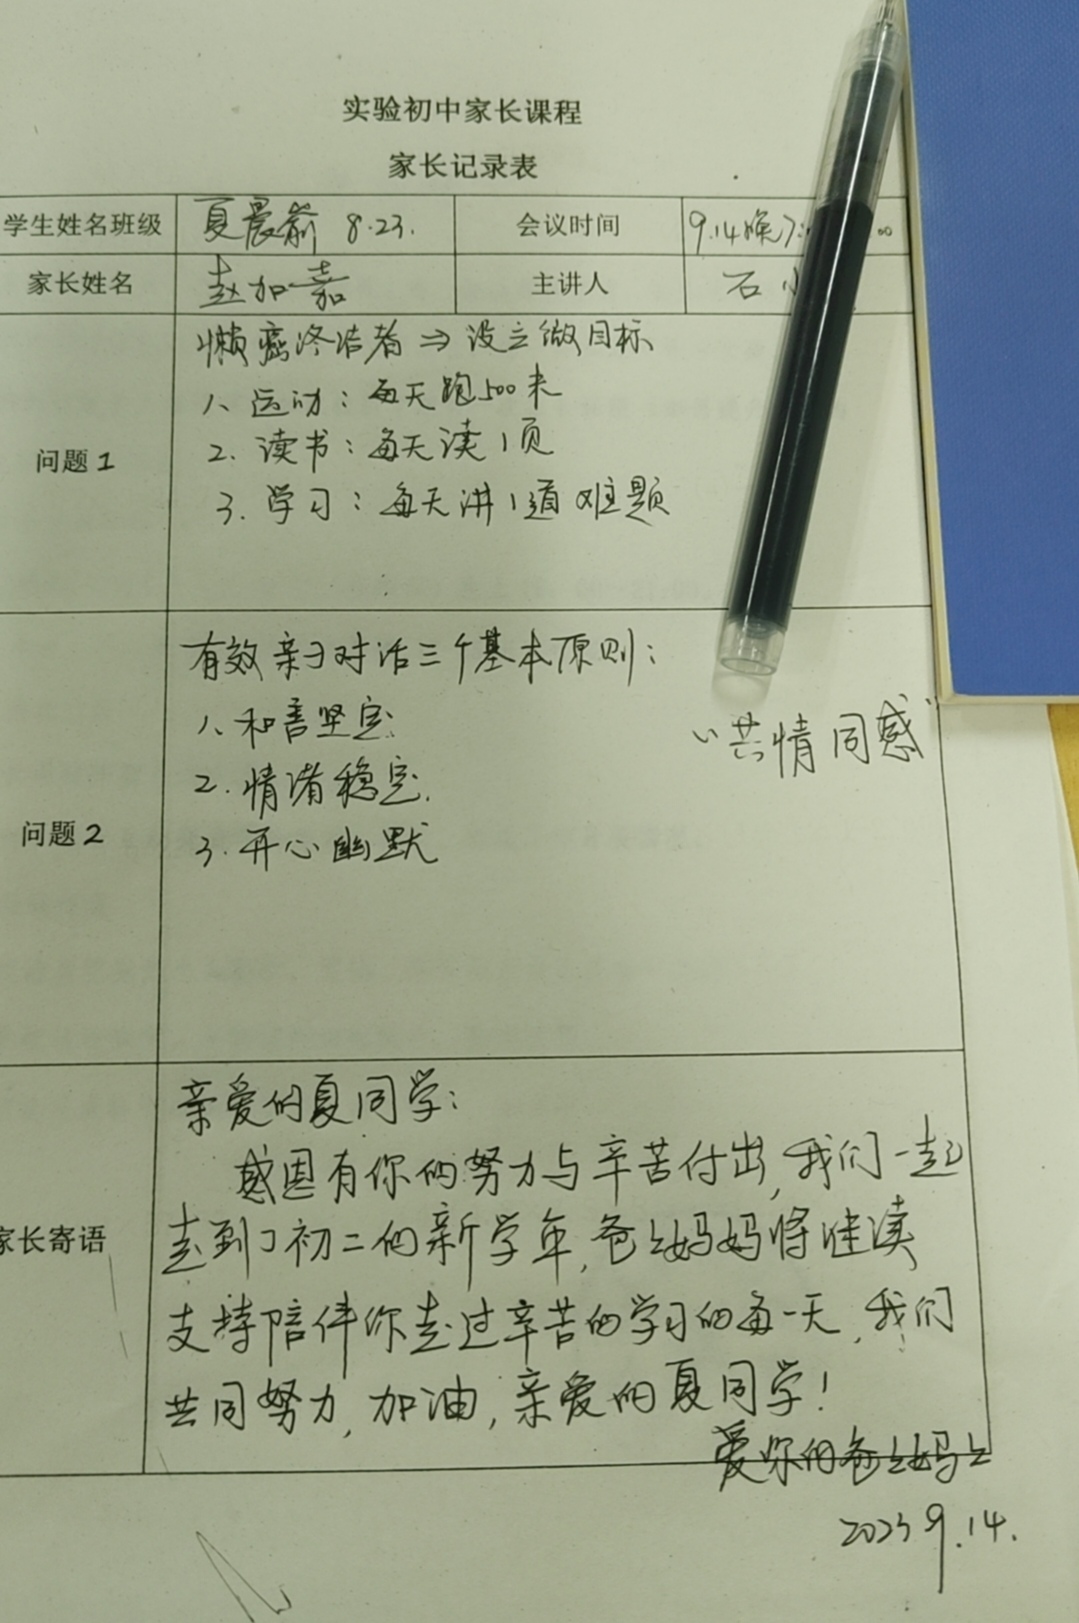 实验初中家长课程
家长记录表
学生姓名班级 夏晨前 8.23. 会议时间 9.14晚7:
家长姓名 赵加嘉 主讲人 石小
问题1
懒癌终结者 ⇒ 设立微目标
1、运动：每天跑500米
2. 读书：每天读1页
3. 学习：每天讲1道难题
问题2
有效亲子对话三个基本原则：
1、和善坚定
“共情同感”
2. 情绪稳定.
3. 开心幽默
家长寄语
亲爱的夏同学：
感恩有你的努力与辛苦付出,我们一起
走到了初二的新学年,爸爸妈妈将继续
支持陪伴你走过辛苦的学习的每一天,我们
共同努力,加油,亲爱的夏同学！
爱你的爸爸妈妈
2023 9.14.